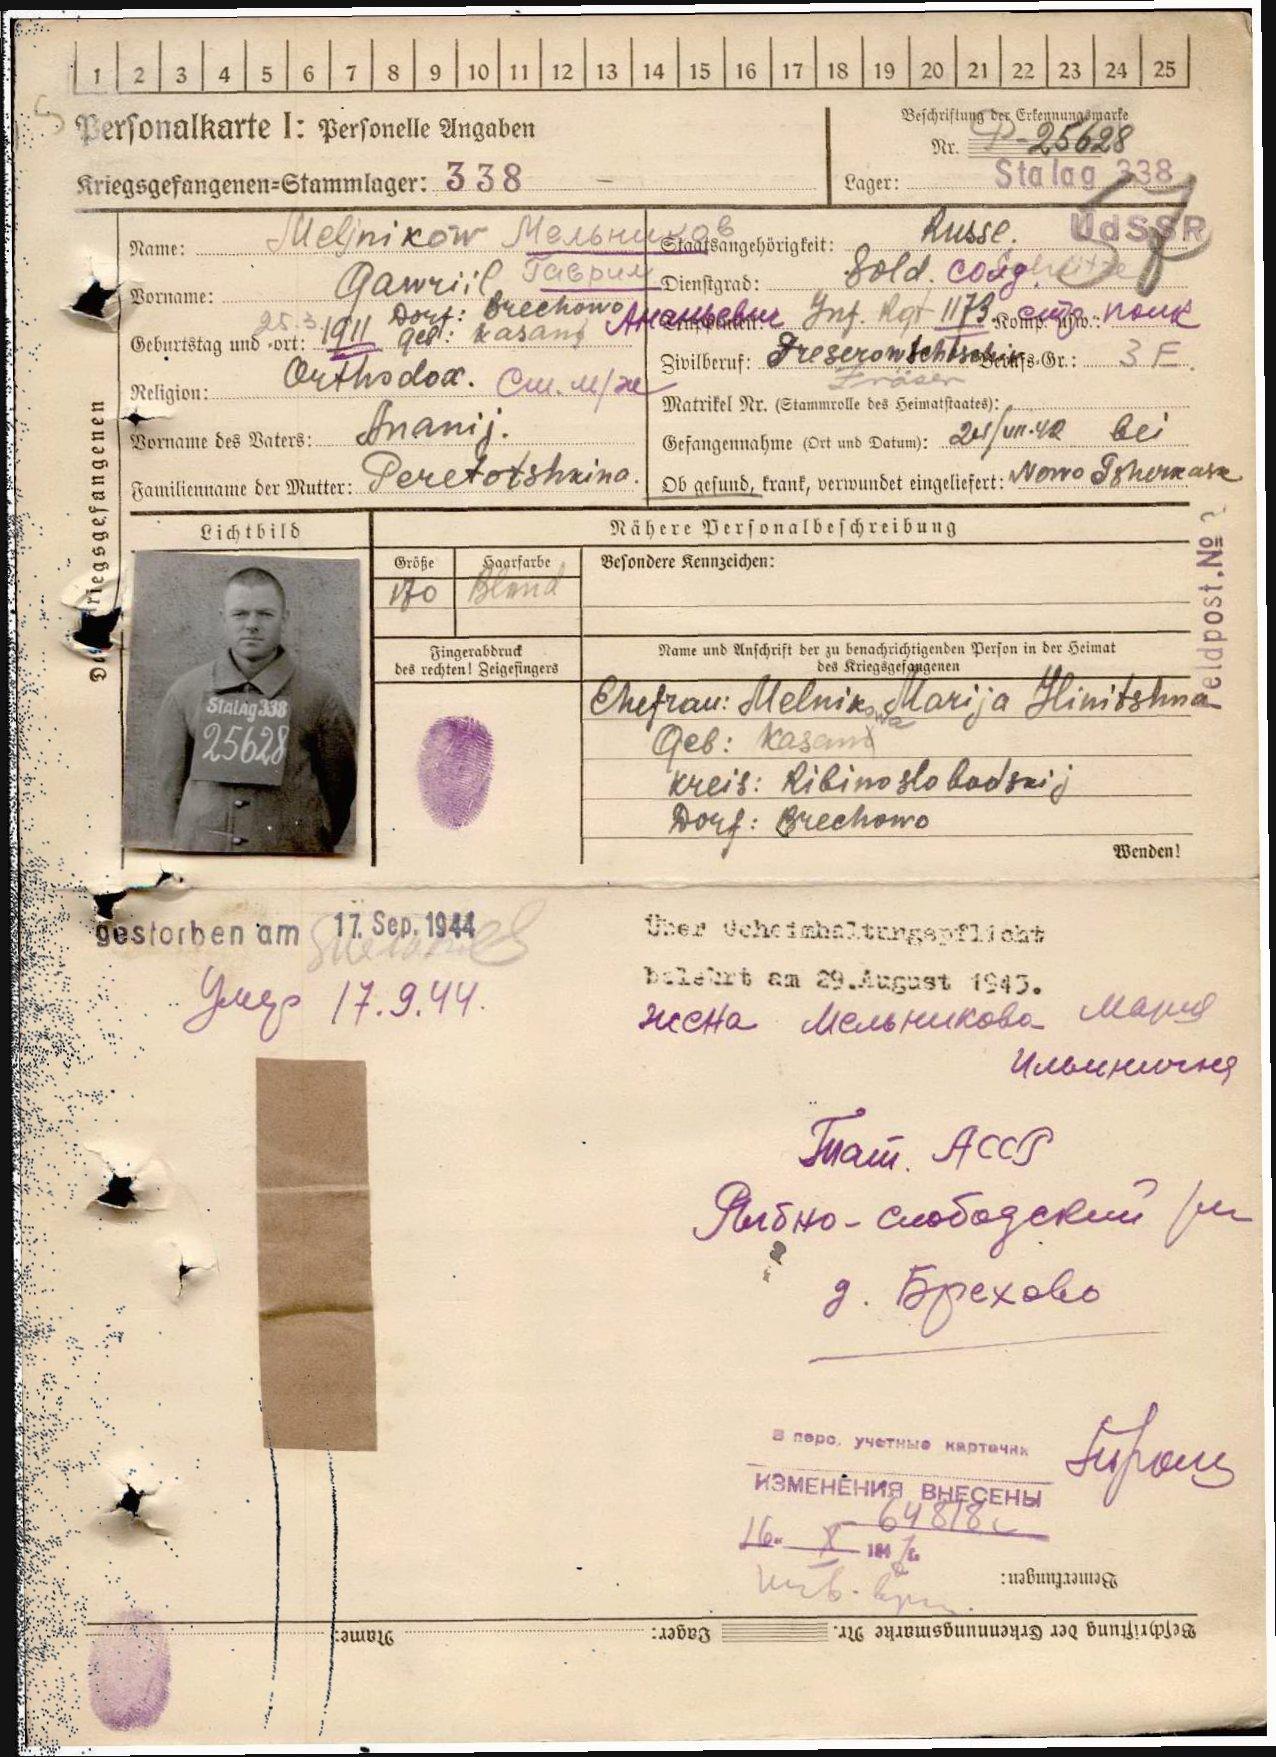 1 2 3 4 5 6 7 8 9 10 11 12 13 14 15 16 17 18 19 20 21 22 23 24 25
Personalkarte I: Personelle Angaben
Beschriftung der Erkennungsmarke
Nr. 25628
Kriegsgefangenen=Stammlager: 338
Lager: Stalag 338
UdSSR
Des Kriegsgefangenen
Name: Meljnikow Мельников
Vorname: Gawriil Гаврил
Ананьевич
Dorf: Brechowo
Geburtstag und =ort: 25.3. 1911 geb: Kasanj
Religion: Orthodox.
Vorname des Vaters: Ananij.
Familienname der Mutter: Peretotshkina.
Staatsangehörigkeit: Russe.
Dienstgrad: Sold. солд. Schütze
Truppenteil: Inf. Rgt 1173 Komp. usw.: стр. полк
Zivilberuf: Freserowschtschik Berufs-Gr.: 3 F.
Fräser
Matrikel Nr. (Stammrolle des Heimatstaates):
Gefangennahme (Ort und Datum): bei
Ob gesund, krank, verwundet eingeliefert: Nowo Tsherkask
Feldpost.№
Lichtbild
Stalag 338
25628
Nähere Personalbeschreibung
Größe Haarfarbe Besondere Kennzeichen:
170 Blond
Fingerabdruck
des rechten! Zeigefingers
Name und Anschrift der zu benachrichtigenden Person in der Heimat
des Kriegsgefangenen
Ehefrau: Melnikowa Marija Ilinitshna
Geb: Kasanj
Kreis: Ribinoslobodskij
Dorf: Brechowo
Wenden!
gestorben am 17. Sep. 1944
Умер 17.9.44.
Über Geheimhaltungspflicht
belehrt am 29.August 1943.
жена Мельникова Мария
Ильинична
Тат. АССР
Рыбно-слободский р-н
д. Брехово
В перс. учетные карточки
ИЗМЕНЕНИЯ ВНЕСЕНЫ
Bemerkungen:
Beschriftung der Erkennungsmarke Nr. Lager: Name: